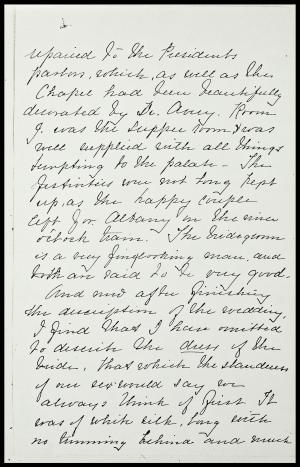 repaired to the Presidents
parlors, which, as well as the
Chapel had been beautifully
decorated by Dr. Avery. Room
J. was the supper room & was
well supplied with all things
tempting to the palate - The
festivities were not long kept
up, as the happy couple
left for Albany on the nine
o'clock train. The bridegroom
is a very fine looking man, and
both are said to be very good.
And now after finishing
the description of the wedding,
I find that I have omitted
to describe the dress of the
bride, that which the slanderers
of our sex would say we
always think of first. It
was of white silk, long with
no trimming behind and much